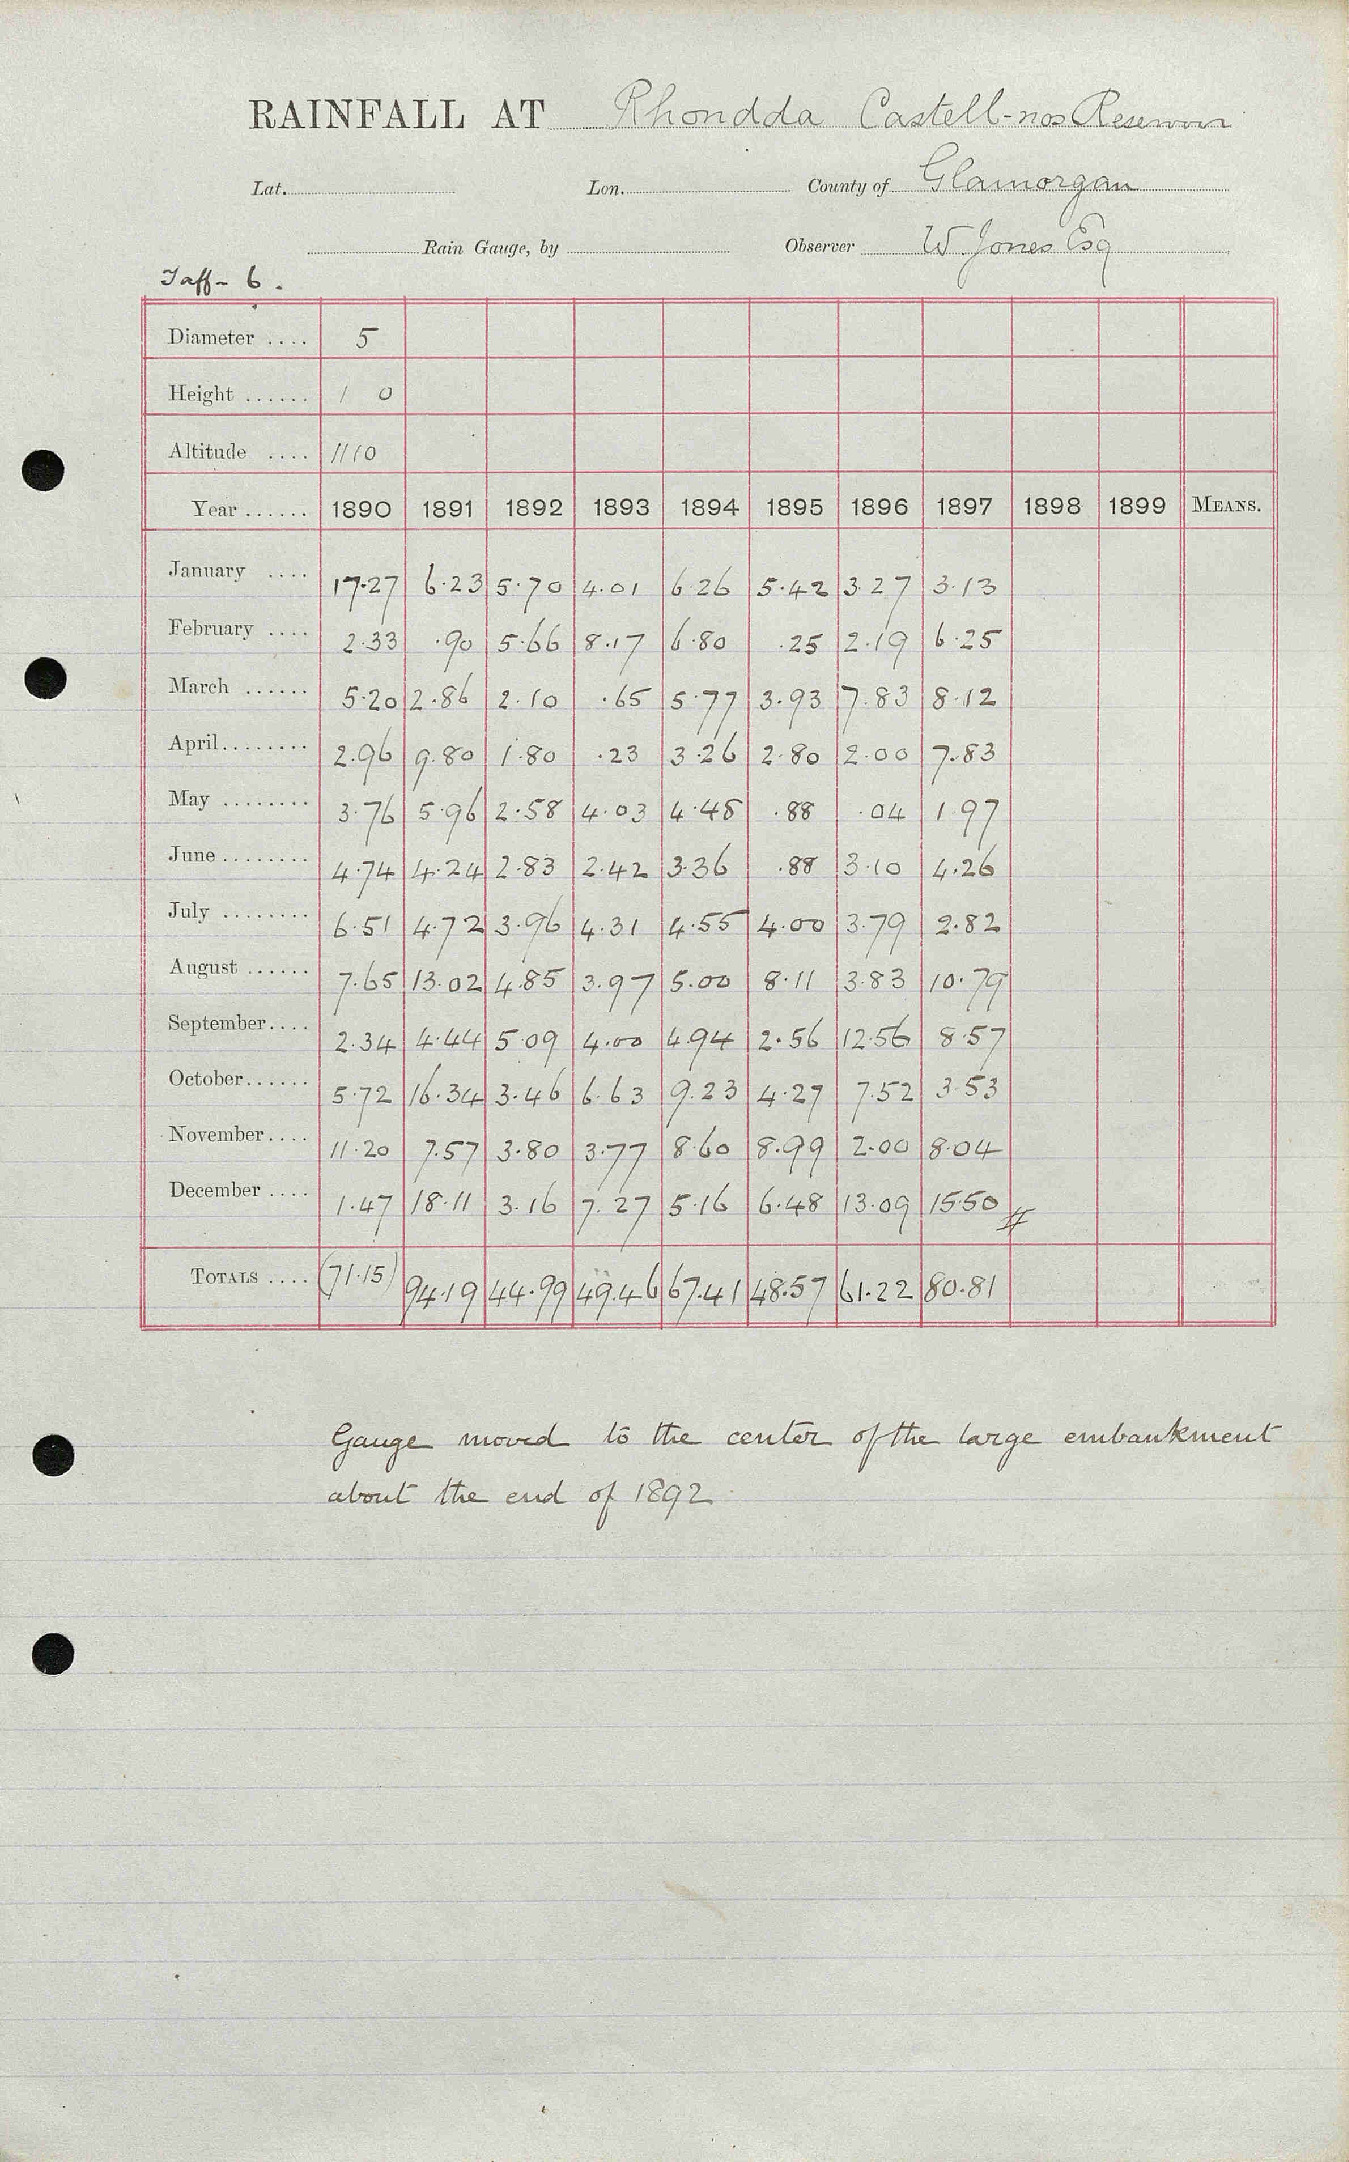 RAINFALL AT Rhondda Castell-nos Reservoir
Lat. Lon. County of Glamorgan
Rain Gauge, by Observer W Jones Esq
Taff- 6.
Diameter .... 5
Height ...... 1 0
Altitude .... 1110
Year ...... 1890 1891 1892 1893 1894 1895 1896 1897 1898 1899 MEANS.
January .... 17.27 6.23 5.70 4.01 6.26 5.42 3.27 3.13
February .... 2.33 .90 5.66 8.17 6.80 .25 2.19 6.25
March ...... 5.20 2.86 2.10 .65 5.77 3.93 7.83 8.12
April........ 2.96 9.80 1.80 .23 3.26 2.80 2.00 7.83
May ........ 3.76 5.96 2.58 4.03 4.48 .88 .04 1.97
June ........ 4.74 4.24 2.83 2.42 3.36 .88 3.10 4.26
July ........ 6.51 4.72 3.96 4.31 4.55 4.00 3.79 2.82
August ...... 7.65 13.02 4.85 3.97 5.00 8.11 3.83 10.79
September.... 2.34 4.44 5.09 4.00 4.94 2.56 12.56 8.57
October...... 5.72 16.34 3.46 6.63 9.23 4.27 7.52 3.53
November.... 11.20 7.57 3.80 3.77 8.60 8.99 2.00 8.04
December .... 1.47 18.11 3.16 7.27 5.16 6.48 13.09 15.50 #
TOTALS .... (71.15) 94.19 44.99 49.46 67.41 48.57 61.22 80.81
Gauge moved to the center of the large embankment
about the end of 1892